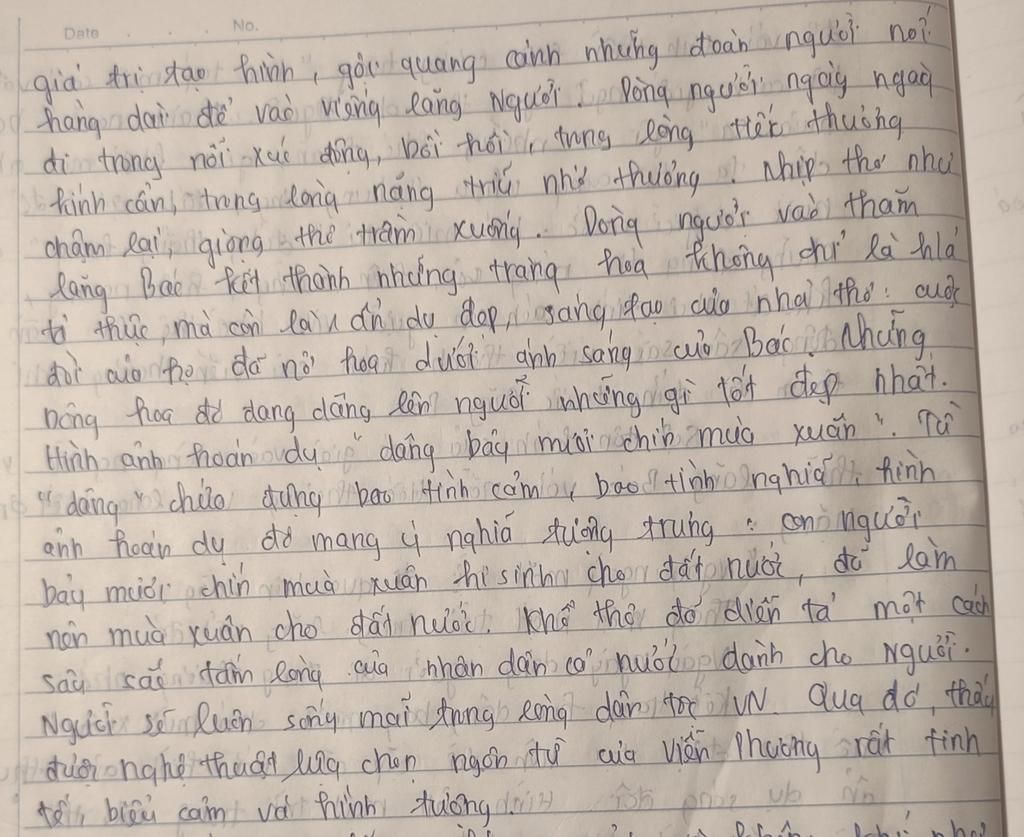 Date No.
giá trị tạo hình, gợi quang cảnh những đoàn người nối
hàng dài để vào viếng lăng Người. Dòng người ngày ngày
đi trong nỗi xúc động, bồi hồi, trong lòng tiếc thương
kính cẩn, trong lòng nặng trĩu nhớ thương. Nhịp thơ như
chậm lại, giọng thơ trầm xuống. Dòng người vào thăm
lăng Bác kết thành những tràng hoa không chỉ là h/ả
tả thực, mà còn là ẩn dụ đẹp, sáng tạo của nhà thơ: cuộc
đời của họ đã nở hoa dưới ánh sáng của Bác. Những
bông hoa đó đang dâng lên người những gì tốt đẹp nhất.
Hình ảnh hoán dụ "dâng bảy mươi chín mùa xuân". Từ
"dâng" chứa đựng bao tình cảm, bao tình nghĩa, hình
ảnh hoán dụ đó mang ý nghĩa tượng trưng: con người
bảy mươi chín mùa xuân hi sinh cho đất nước, đã làm
nên mùa xuân cho đất nước. Khổ thơ đã diễn tả một cách
sâu sắc tấm lòng của nhân dân cả nước dành cho Người.
Người sẽ luôn sống mãi trong lòng dân tộc VN. Qua đó, thấy
được nghệ thuật lựa chọn ngôn từ của Viễn Phương rất tinh
tế, biểu cảm và hình tượng.